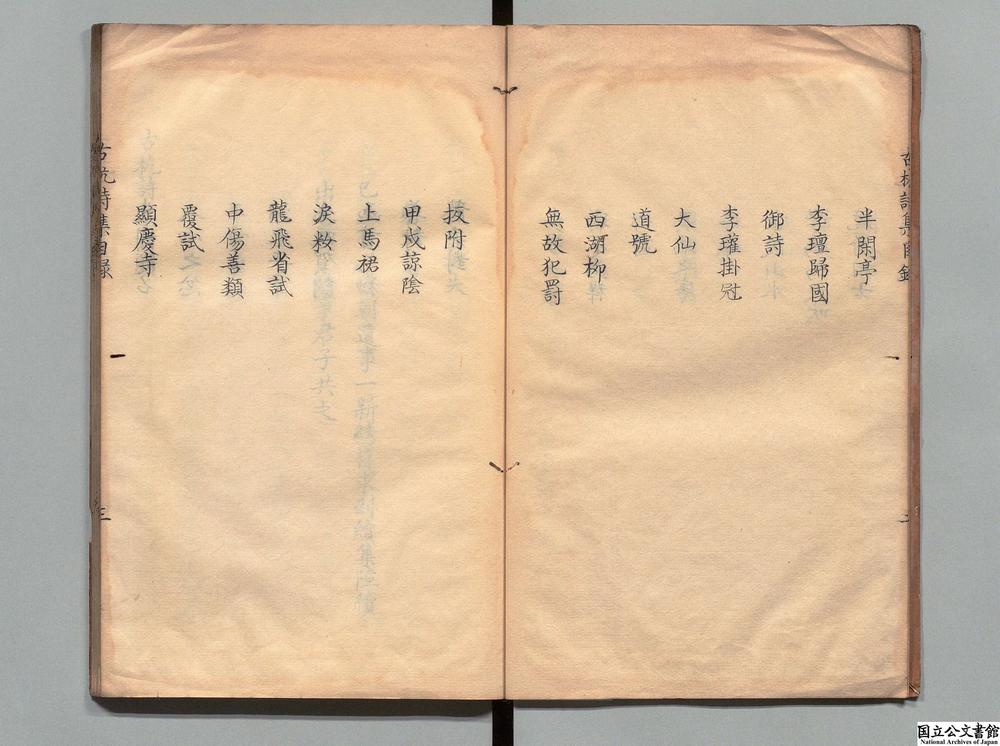 半閑亭
李璮歸國
御詩
李瓘掛冠
大仙
道號
西湖柳
無故犯罰
拔附
甲戍諒陰
上馬裙
淚粧
龍飛省試
中傷善類
覆試
顯慶寺
古杭詩集目録
三
国立公文書館
National Archives of Japan